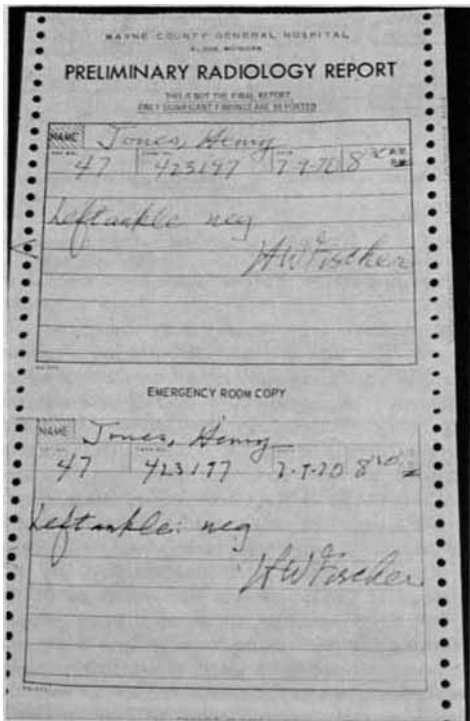 WAYNE COUNTY GENERAL HOSPITAL
ELOISE, MICHIGAN
PRELIMINARY RADIOLOGY REPORT
THIS IS NOT THE FINAL REPORT
ONLY SIGNIFICANT FINDINGS ARE REPORTED
NAME Jones, Henry
47 423197 7-9-70 8 30
Left ankle neg
HW Fischer
EMERGENCY ROOM COPY
NAME Jones, Henry
47 423197 7-9-70 8 30
Left ankle: neg
HW Fischer